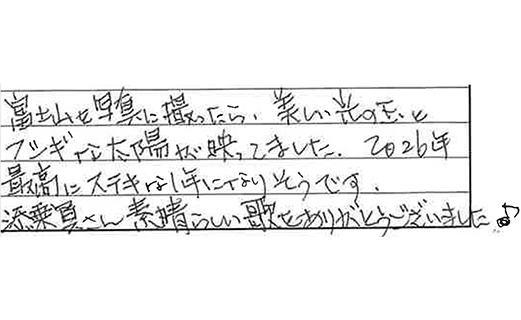 富士山を写真に撮ったら、美しい光の玉と
フシギな太陽が映ってました。2026年
最高にステキな1年になりそうです。
添乗員さん素晴らしい歌をありがとうございました♪